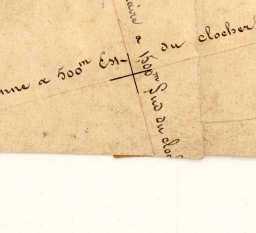 nne a 500m Est
a du clocher
1500m Sud du cloc